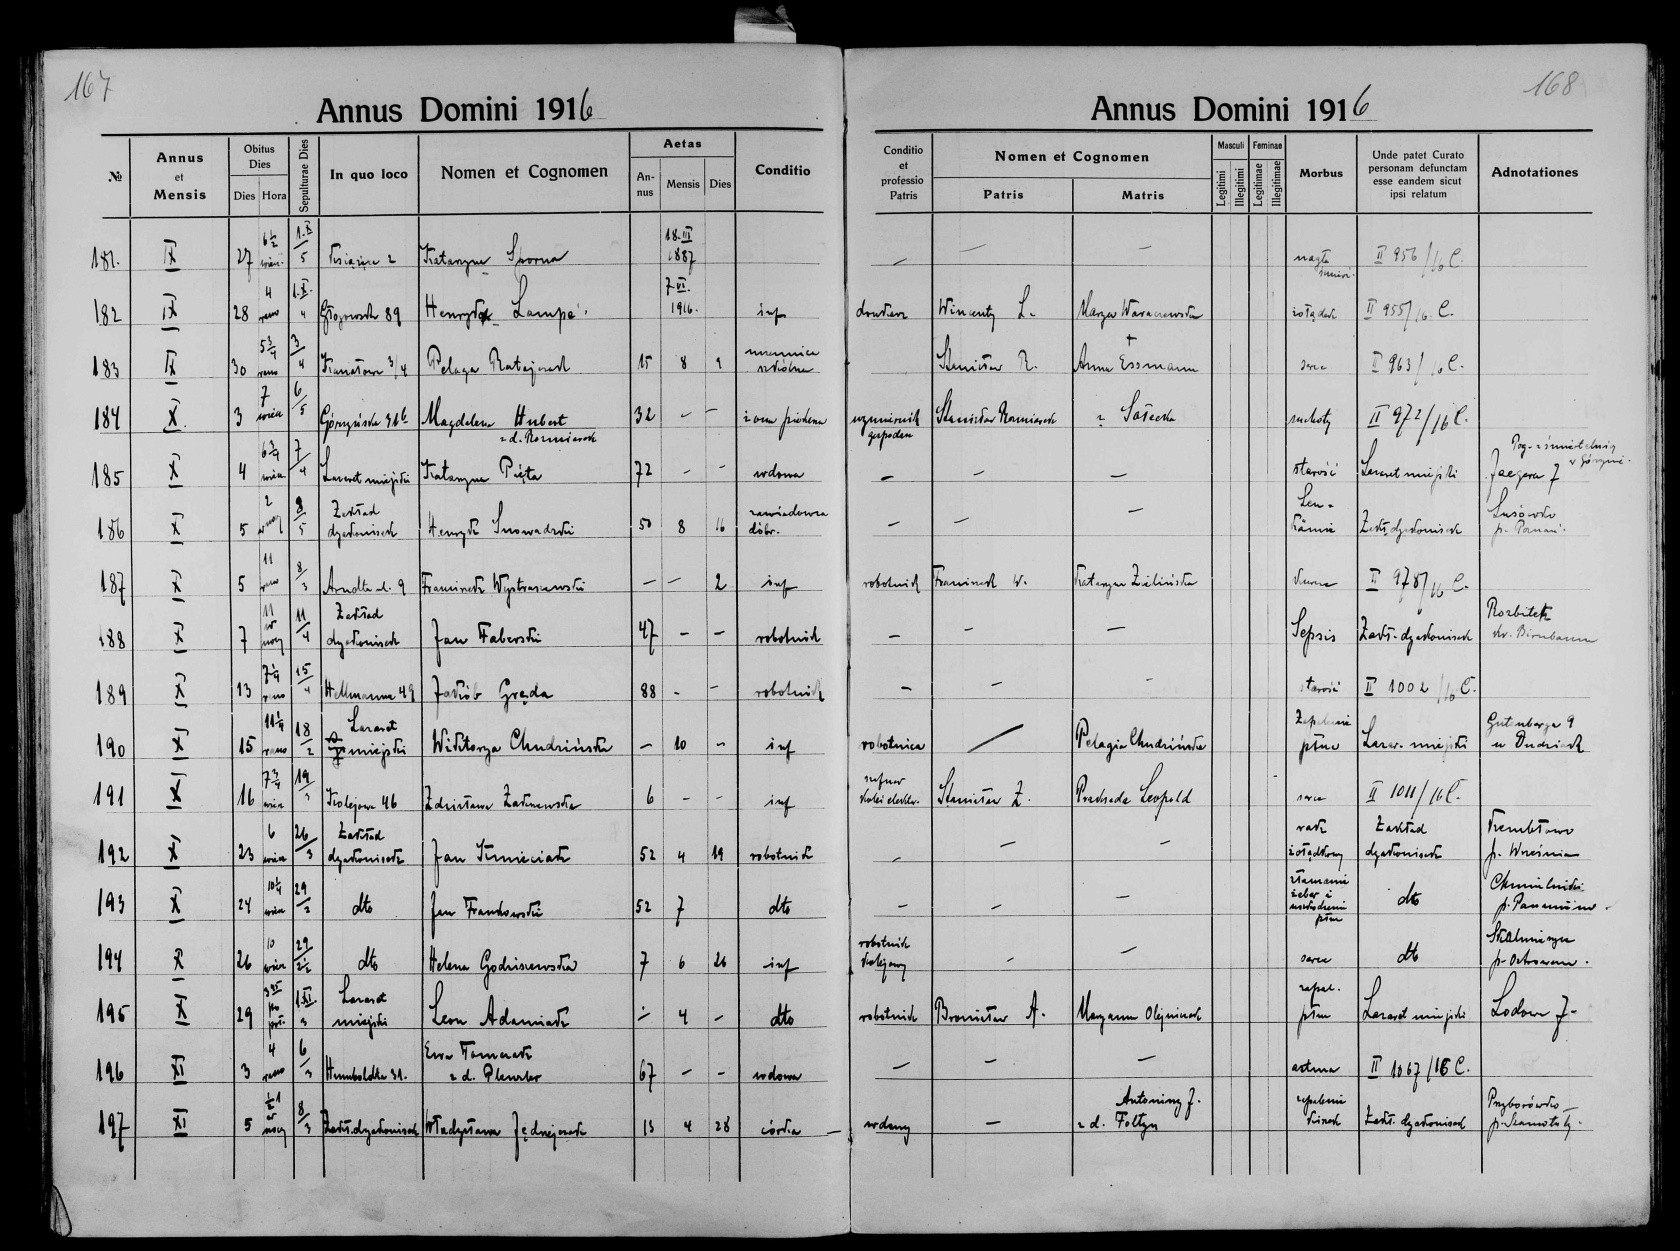 167
Annus Domini 1916
№ Annus et Mensis Obitus Dies Dies Hora Sepulturae Dies In quo loco Nomen et Cognomen Aetas Annus Mensis Dies Conditio
181. IX 27 6½ 1.X/5 2 Katarzyna 18.III 1887
182 IX 28 4 rano 1.X./4 89 Henryk Lampe 7.VI. 1916. inf
183 IX 30 5¾ rano 3/4 Kanałowa 3/4 Pelagia Ratajczak 15 8 uczennica szkólna
184 X. 3 7 wiecz 6/5 Górczyńska 31b Magdalena Hubert 32 – – żona
z d. Rozmiarek
185 X 4 6¾ wiecz 7/4 Lazaret miejski Katarzyna Pięta 72 – – wdowa
186 X 5 2 w nocy 8/5 Zakład dyakonisek Henryk Snowadzki 50 8 16 zawiadowca dóbr.
187 X 5 11 rano 8/3 Arndta ul. 9 Franciszek Wystraszewski – – 2 inf
188 X 7 11 w nocy 11/4 Zakład dyakonisek Jan Faberski 47 – – robotnik
189 X 13 7¼ rano 15/4 Hellmanna 49 Jakób Gręda 88 – – robotnik
190 X 15 11¼ rano 18/2 Lazaret miejski Wiktorya Chudzińska – 10 – inf
191 X 16 7¾ wiecz 19/3 Kolejowa 46 Zdzisława 6 – – inf
192 X 23 6 wiecz 26/3 Zakład dyakonisek Jan Kmieciak 52 4 19 robotnik
193 X 24 10¼ wiecz 29/2 dto Jan Frankowski 52 7 dto
194 X 26 10 wiecz 29/2½ dto Helena Godziszewska 7 6 26 inf
195 X 29 po poł. 1.XI/3 Lazaret miejski Leon Adamiak – 4 – dto
196 XI 3 4 rano 6/3 Humboldta 31. Ewa Tomczak 67 – – wdowa
z d. Plenzler
197 XI 5 ½1 w nocy 8/3 Zakł. dyakonisek Władysława Jędrzejczak 13 4 28 córka –
168
Annus Domini 1916
Conditio et professio Patris Nomen et Cognomen Patris Matris Masculi Legitimi Illegitimi Feminae Legitimae Illegitimae Morbus Unde patet Curato personam defunctam esse eandem sicut ipsi relatum Adnotationes
– – – nagła śmierć. II 956/16 C.
drukarz Wincenty L. Marya żołądek II 955/16. C.
Stanisław R. Anna Essmann † serce II 963/16 C.
gospodarz Stanisław Rozmiarek z Sołecka suchoty II 972/16 C.
– – – starość Lazaret miejski Jaegera 7
– – – Zakł. dyakonisek Lusówko p. Poznań.
robotnik Franciszek W. Katarzyna Zielińska kurcze II 978/16 C.
– – – Sepsis Zakł. dyakonisek Rozbitek kr. Birnbaum
– – – starość II 1002/16 C.
robotnica – Pelagia Chudzińska Zapalenie płuc Lazar. miejski Gutenberga 9 u
szefner kolei elektr. Stanisław Z. Prakseda Leopold serce II 1011/16 C.
– – – rak żołądkowy Zakład dyakonisek p. Września
– – – złamanie żeber i uszkodzenie płuc dto
robotnik kolejowy – – serce dto Skalmierzyce p. Ostrowem.
robotnik Bronisław A. Maryanna Olejniczak zapal. płuc Lazaret miejski Lodowa 7–
– – – astma II 1067/16 C.
wdowy – Antoniny J. z d. Foltyn zapalenie kiszek Zakł. dyakonisek Przyborówko p. Szamotuły.